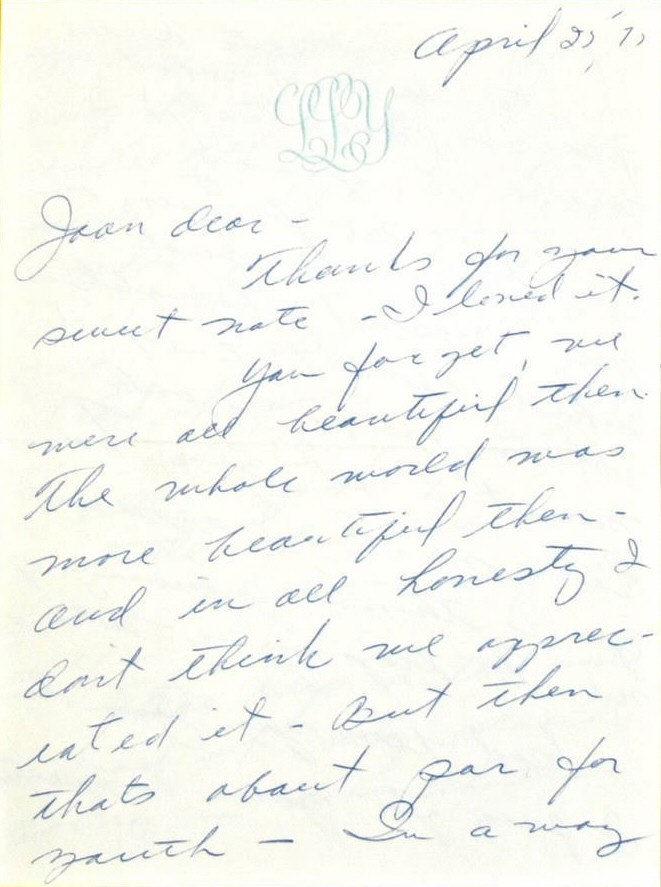 April
LLY
Joan dear -
Thanks for your
sweet note - I loved it.
You forget, we
were all beautiful then.
The whole world was
more beautiful then -
and in all honesty I
don't think we apprec-
iated it - But then
thats about par for
youth - In a way